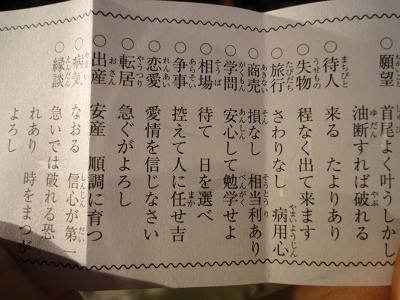 ○願望 首尾よく叶うしかし
油断すれば破れる
○待人 来る たよりあり
○失物 程なく出て来ます
○旅行 さわりなし 病用心
○商売 損なし 相当利あり
○学問 安心して勉学せよ
○相場 待て 日を選べ
○争事 控えて人に任せ吉
○恋愛 愛情を信じなさい
○転居 急ぐがよろし
○出産 安産 順調に育つ
○病気 なおる 信心が第一
○縁談 急いでは破れる恐
れあり 時をまつが
よろし